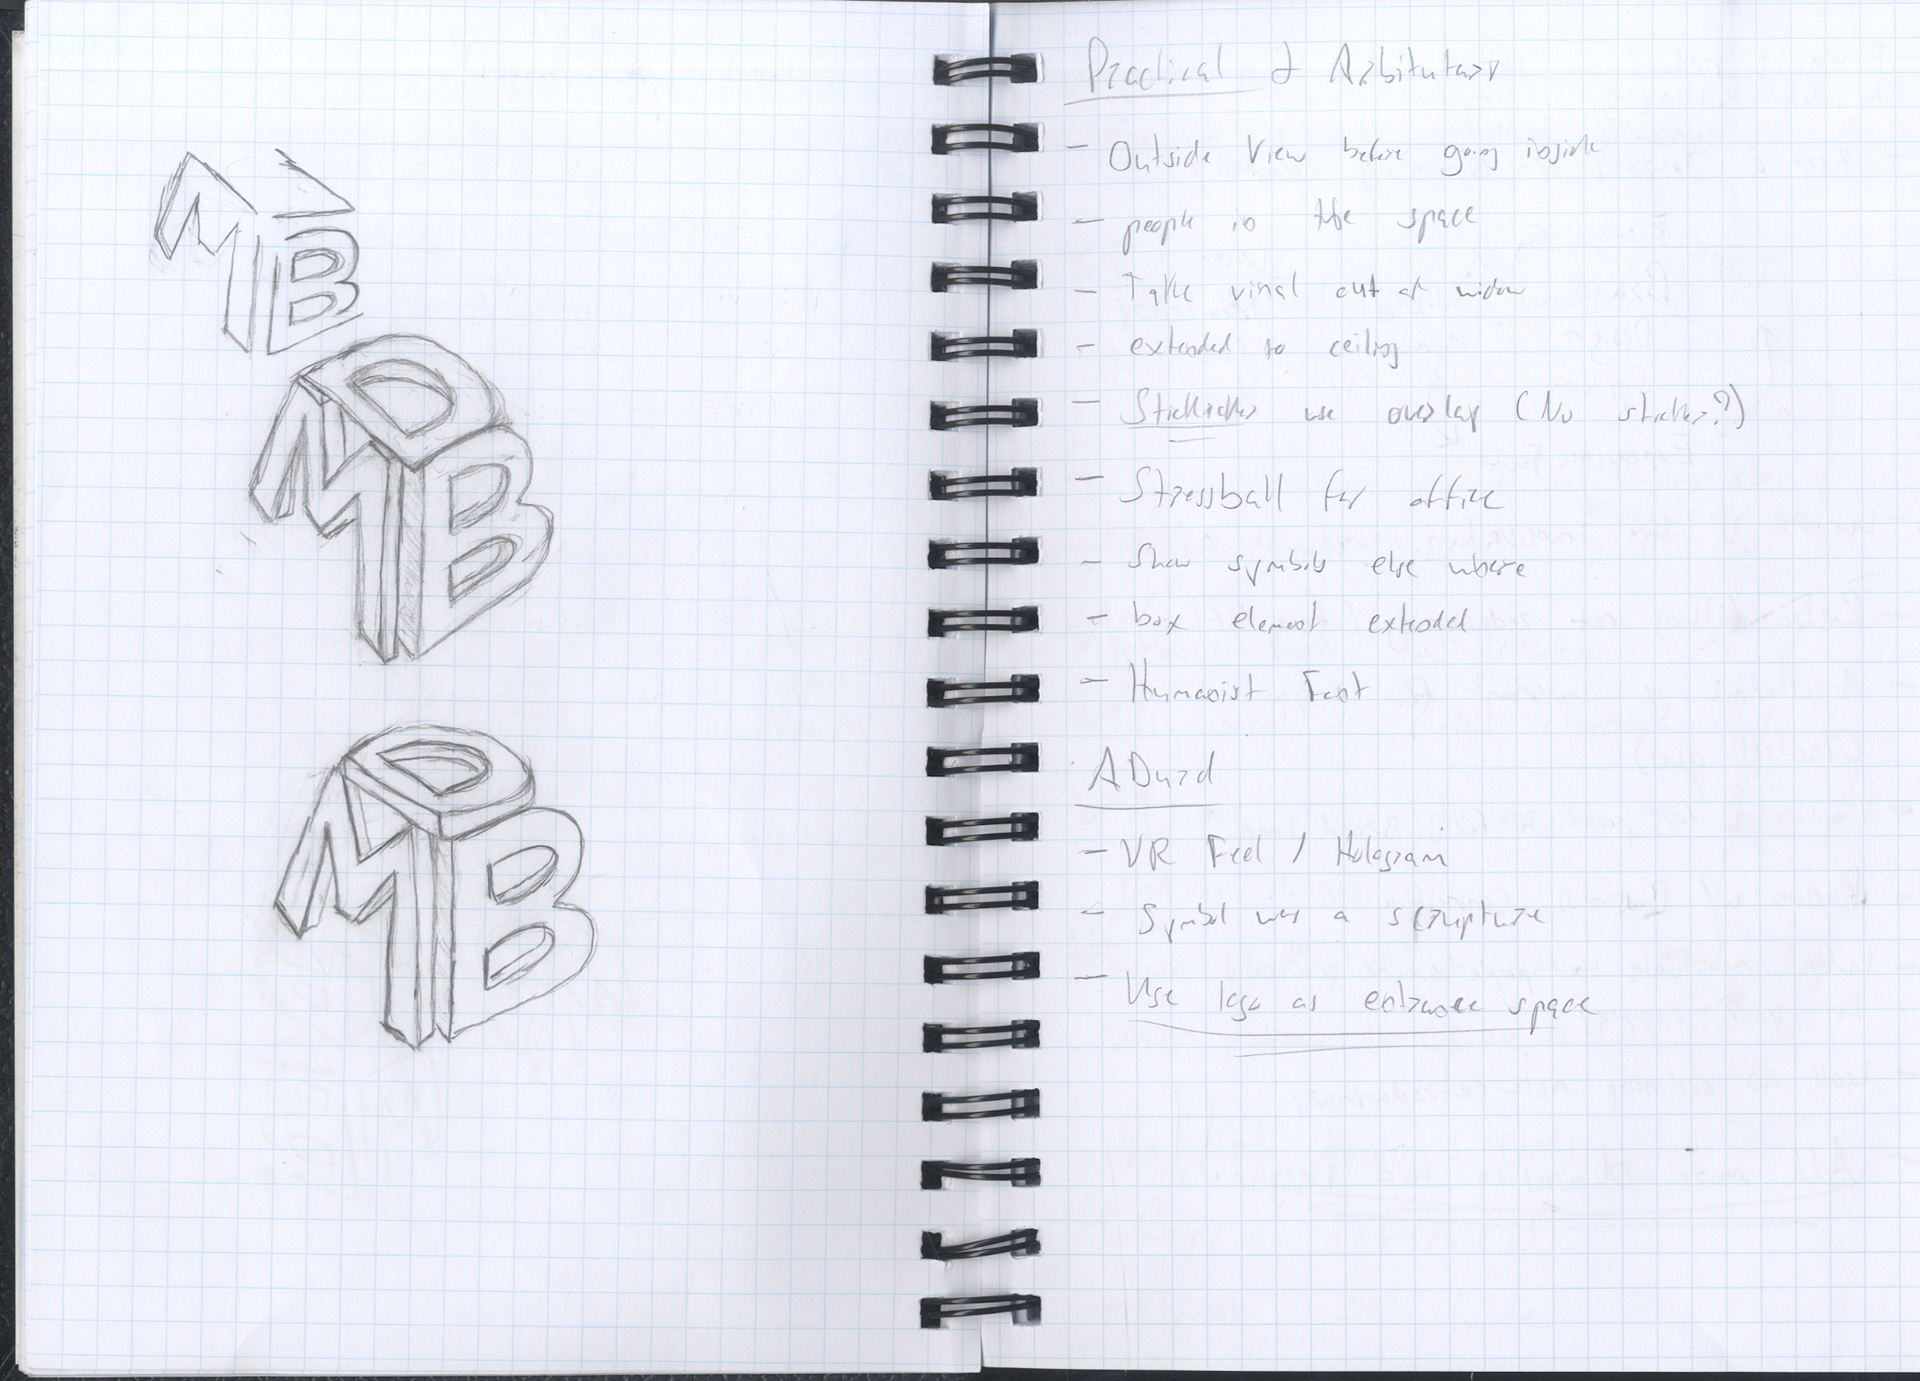 MB
DMB
DMB
Practical & Arbitutary
- Outside View before going inside
- people in the space
- Take vinal out of widow
- extended to ceiling
- use overlay (No sticker?)
- Stressball for office
- Show symbols else where
- box element extended
- Humanist Font
ADurd
- VR Feel / Hologram
- Symbol was a scrupture
- Use logo as entrance space